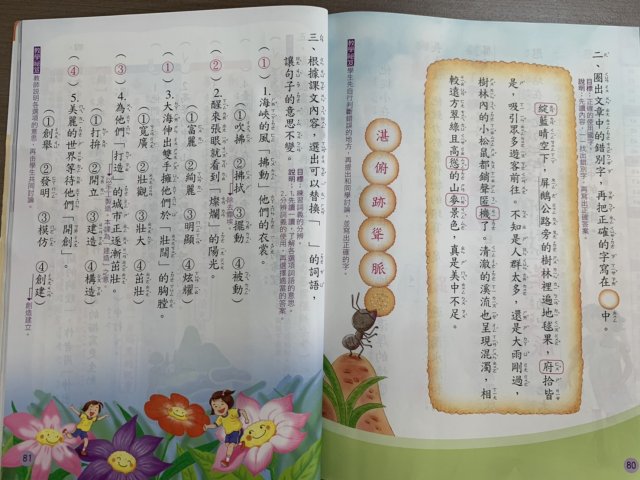 二、圈出文章中的錯別字，再把正確的字寫在○中。
目標：正確的使用國字。
說明：先讀內容，一一找出錯別字，再寫出正確答案。
綻藍晴空下，屏鵝公路旁的樹林裡遍地毬果，府拾皆
是，吸引眾多遊客前往。不知是人群太多，還是大雨剛過，
樹林內的小松鼠都銷聲匿機了。清澈的溪流也呈現混濁，相
較遠方翠綠且高慫的山麥景色，真是美中不足。
湛
俯
跡
聳
脈
教學提醒
學生先自行判斷錯誤的地方，再提出和同學討論，並寫出正確的字。
80
三、根據課文內容，選出可以替換「　」的詞語，
讓句子的意思不變。
目標：練習詞義的分辨。
說明：1.先讀一讀，了解各選項詞語的意思。
2.分辨詞義的使用，再選擇適當的答案。
（①）1.海峽的風「拂動」他們的衣裳。
①吹拂　②拂拭　③擺動　④被動
除去塵埃。
（②）2.醒來張眼就看到「燦爛」的陽光。
①富麗　②絢麗　③明顯　④炫耀
（①）3.大海伸出雙手擁他們於「壯闊」的胸膛。
①寬廣　②壯觀　③壯大　④茁壯
（③）4.為他們「打造」的城市正逐漸茁壯。
①打拚　②開立　③建造　④構造
（④）5.美麗的世界等待他們「開創」。
①創舉　②發明　③模仿　④創建
創造建立。
教學提醒
教師說明各選項的意思，再由學生共同討論。
81